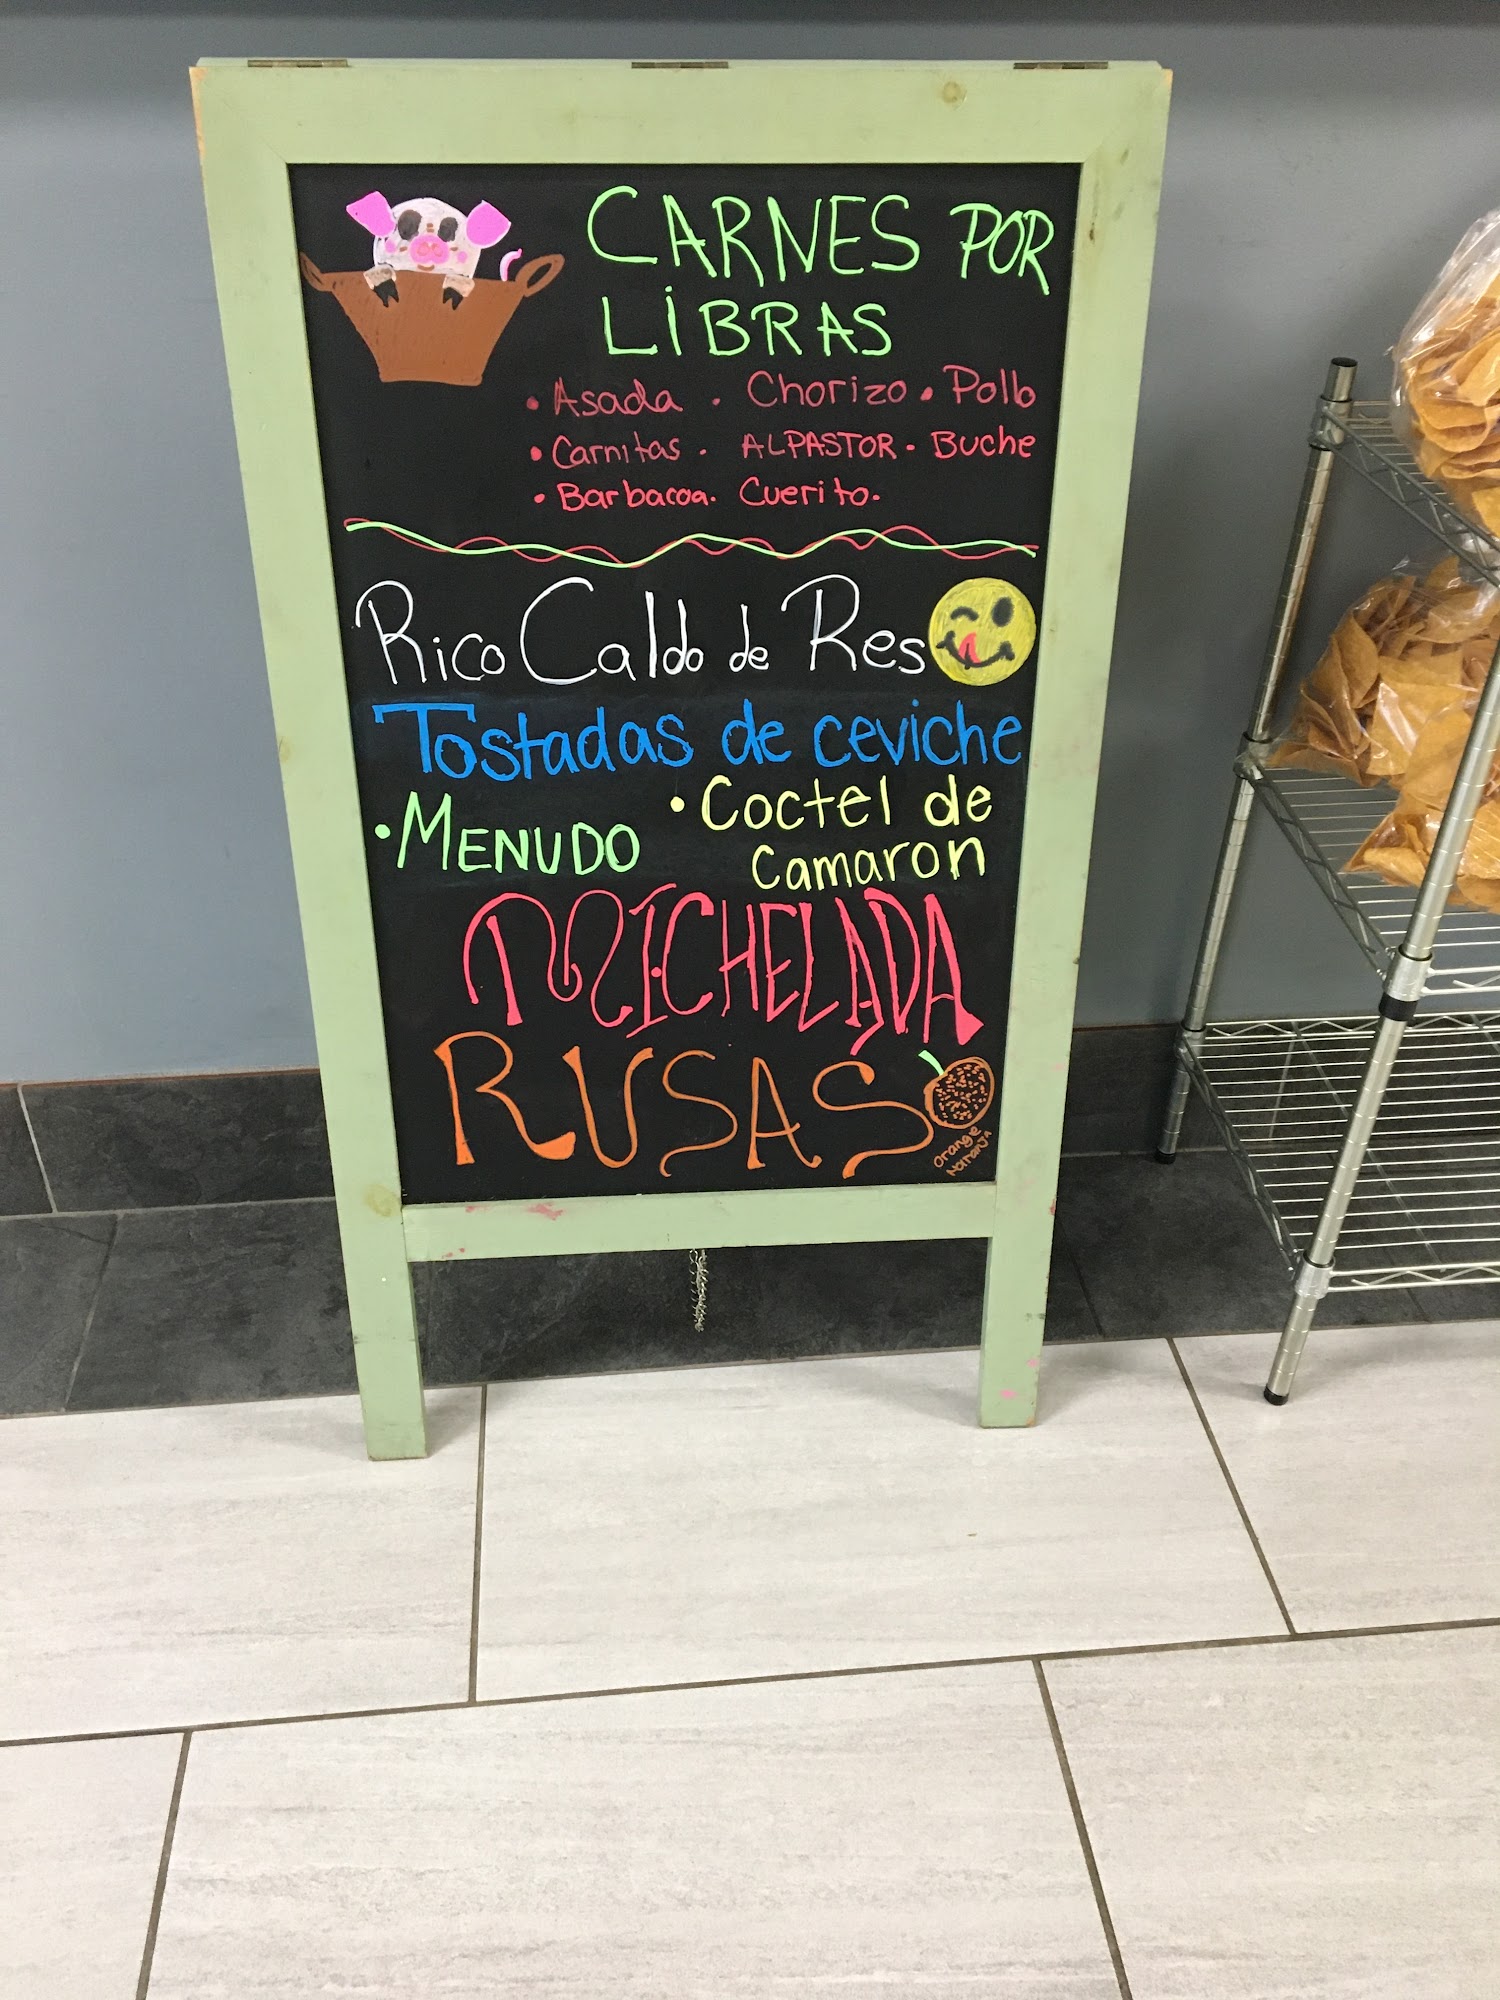 CARNES POR
LIBRAS
• Asada . Chorizo . Pollo
• Carnitas . ALPASTOR . Buche
• Barbacoa. Cuerito.
Rico Caldo de Res
Tostadas de ceviche
• MENUDO
• Coctel de
Camaron
MICHELADA
RUSAS
orange
Naranja